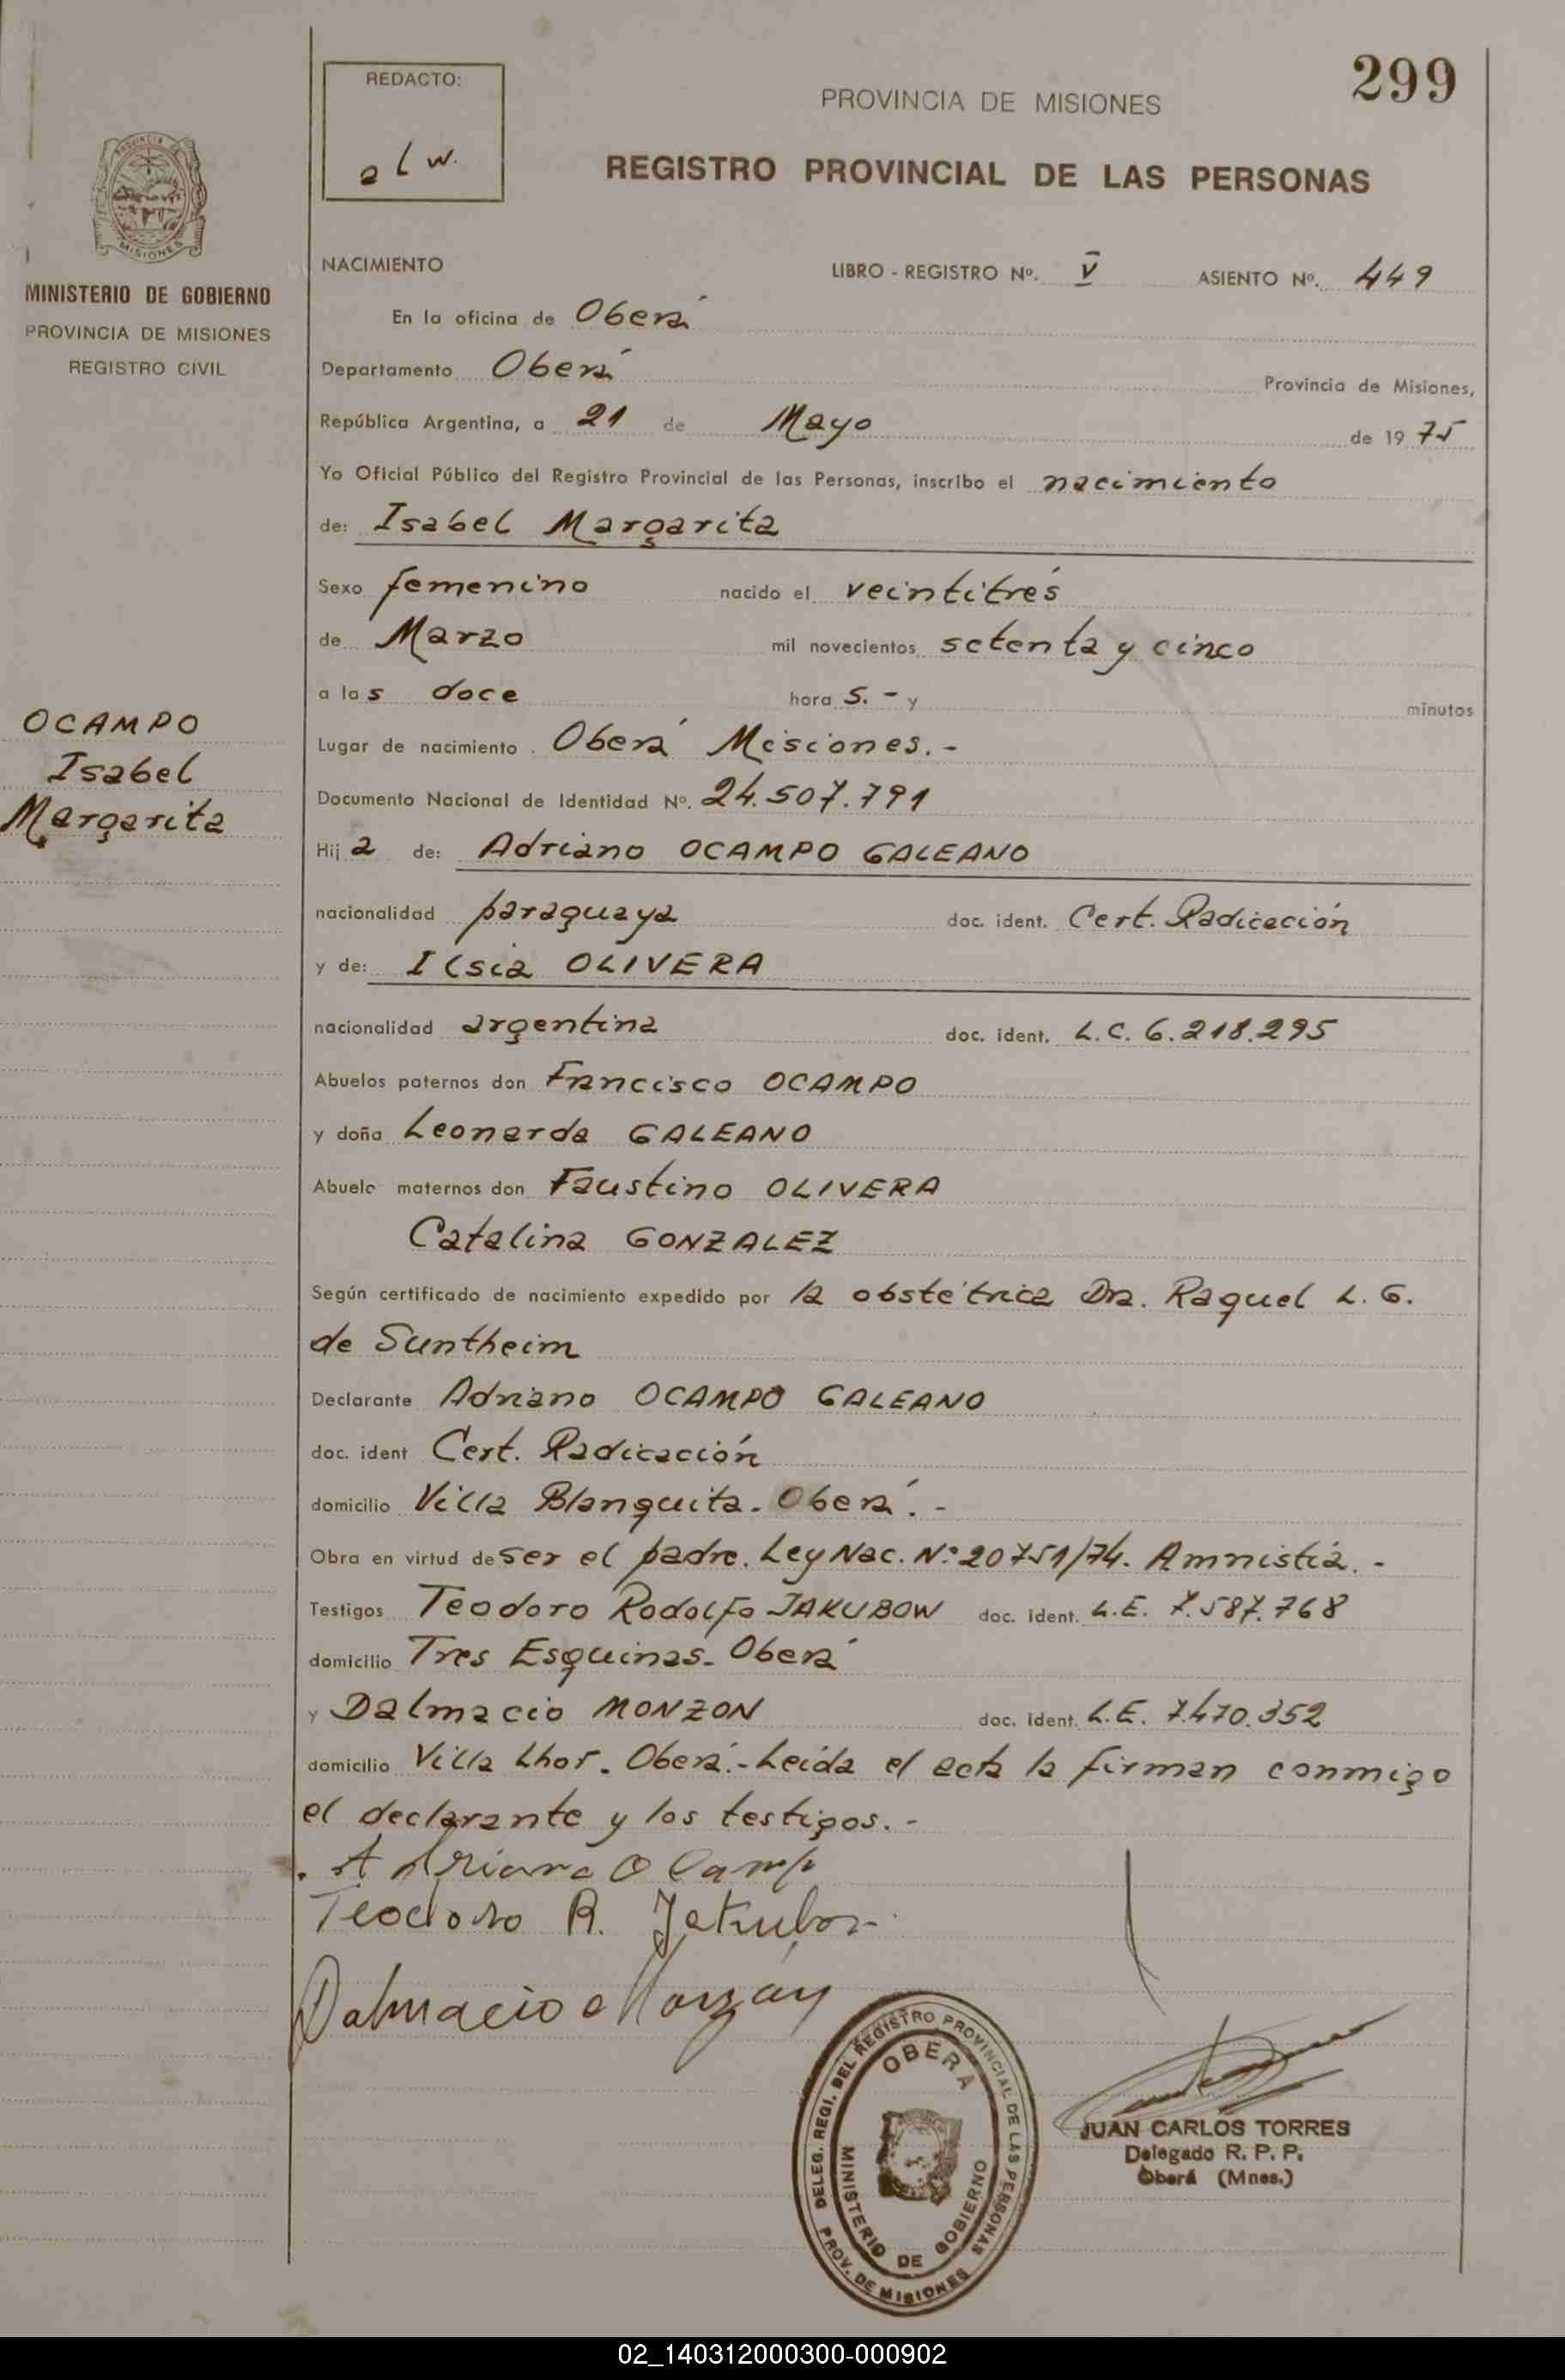 299
REDACTO:
a l w.
PROVINCIA DE MISIONES
REGISTRO PROVINCIAL DE LAS PERSONAS
PROVINCIA DE
MISIONES
MINISTERIO DE GOBIERNO
PROVINCIA DE MISIONES
REGISTRO CIVIL
OCAMPO
Isabel
Margarita
NACIMIENTO LIBRO - REGISTRO Nº. V ASIENTO Nº. 449
En la oficina de Oberá
Departamento Oberá Provincia de Misiones,
República Argentina, a 21 de Mayo de 19 75
Yo Oficial Público del Registro Provincial de las Personas, inscribo el nacimiento
de: Isabel Margarita
Sexo femenino nacido el veintitrés
de Marzo mil novecientos setenta y cinco
a las doce hora s. - y minutos
Lugar de nacimiento Oberá Misiones. -
Documento Nacional de Identidad Nº. 24.507.791
Hij a de: Adriano OCAMPO GALEANO
nacionalidad paraguaya doc. ident. Cert. Radicación
y de: Ilsia OLIVERA
nacionalidad argentina doc. ident. L.C. 6.218.295
Abuelos paternos don Francisco OCAMPO
y doña Leonarda GALEANO
Abuelo maternos don Faustino OLIVERA
Catalina GONZALEZ
Según certificado de nacimiento expedido por la obstétrica Dra. Raquel L. G.
de Suntheim
Declarante Adriano OCAMPO GALEANO
doc. ident Cert. Radicación
domicilio Villa Blanquita. Oberá. -
Obra en virtud de ser el padre. Ley Nac. Nº 20751/74. Amnistía. -
Testigos Teodoro Rodolfo JAKUBOW doc. ident. L.E. 7.587.768
domicilio Tres Esquinas. Oberá
y Dalmacio MONZON doc. ident. L.E. 7.470.352
domicilio Villa Lhor. Oberá.- Leída el acta la firman conmigo
el declarante y los testigos. -
Adriano Ocamp
Teodoro R. Jakubow
Dalmacio Monzón
DELEG. REGI. DEL REGISTRO PROVINCIAL DE LAS PERSONAS
OBERA
MINISTERIO DE GOBIERNO
PROV. DE MISIONES
JUAN CARLOS TORRES
Delegado R. P. P.
Oberá (Mnes.)
02_140312000300-000902